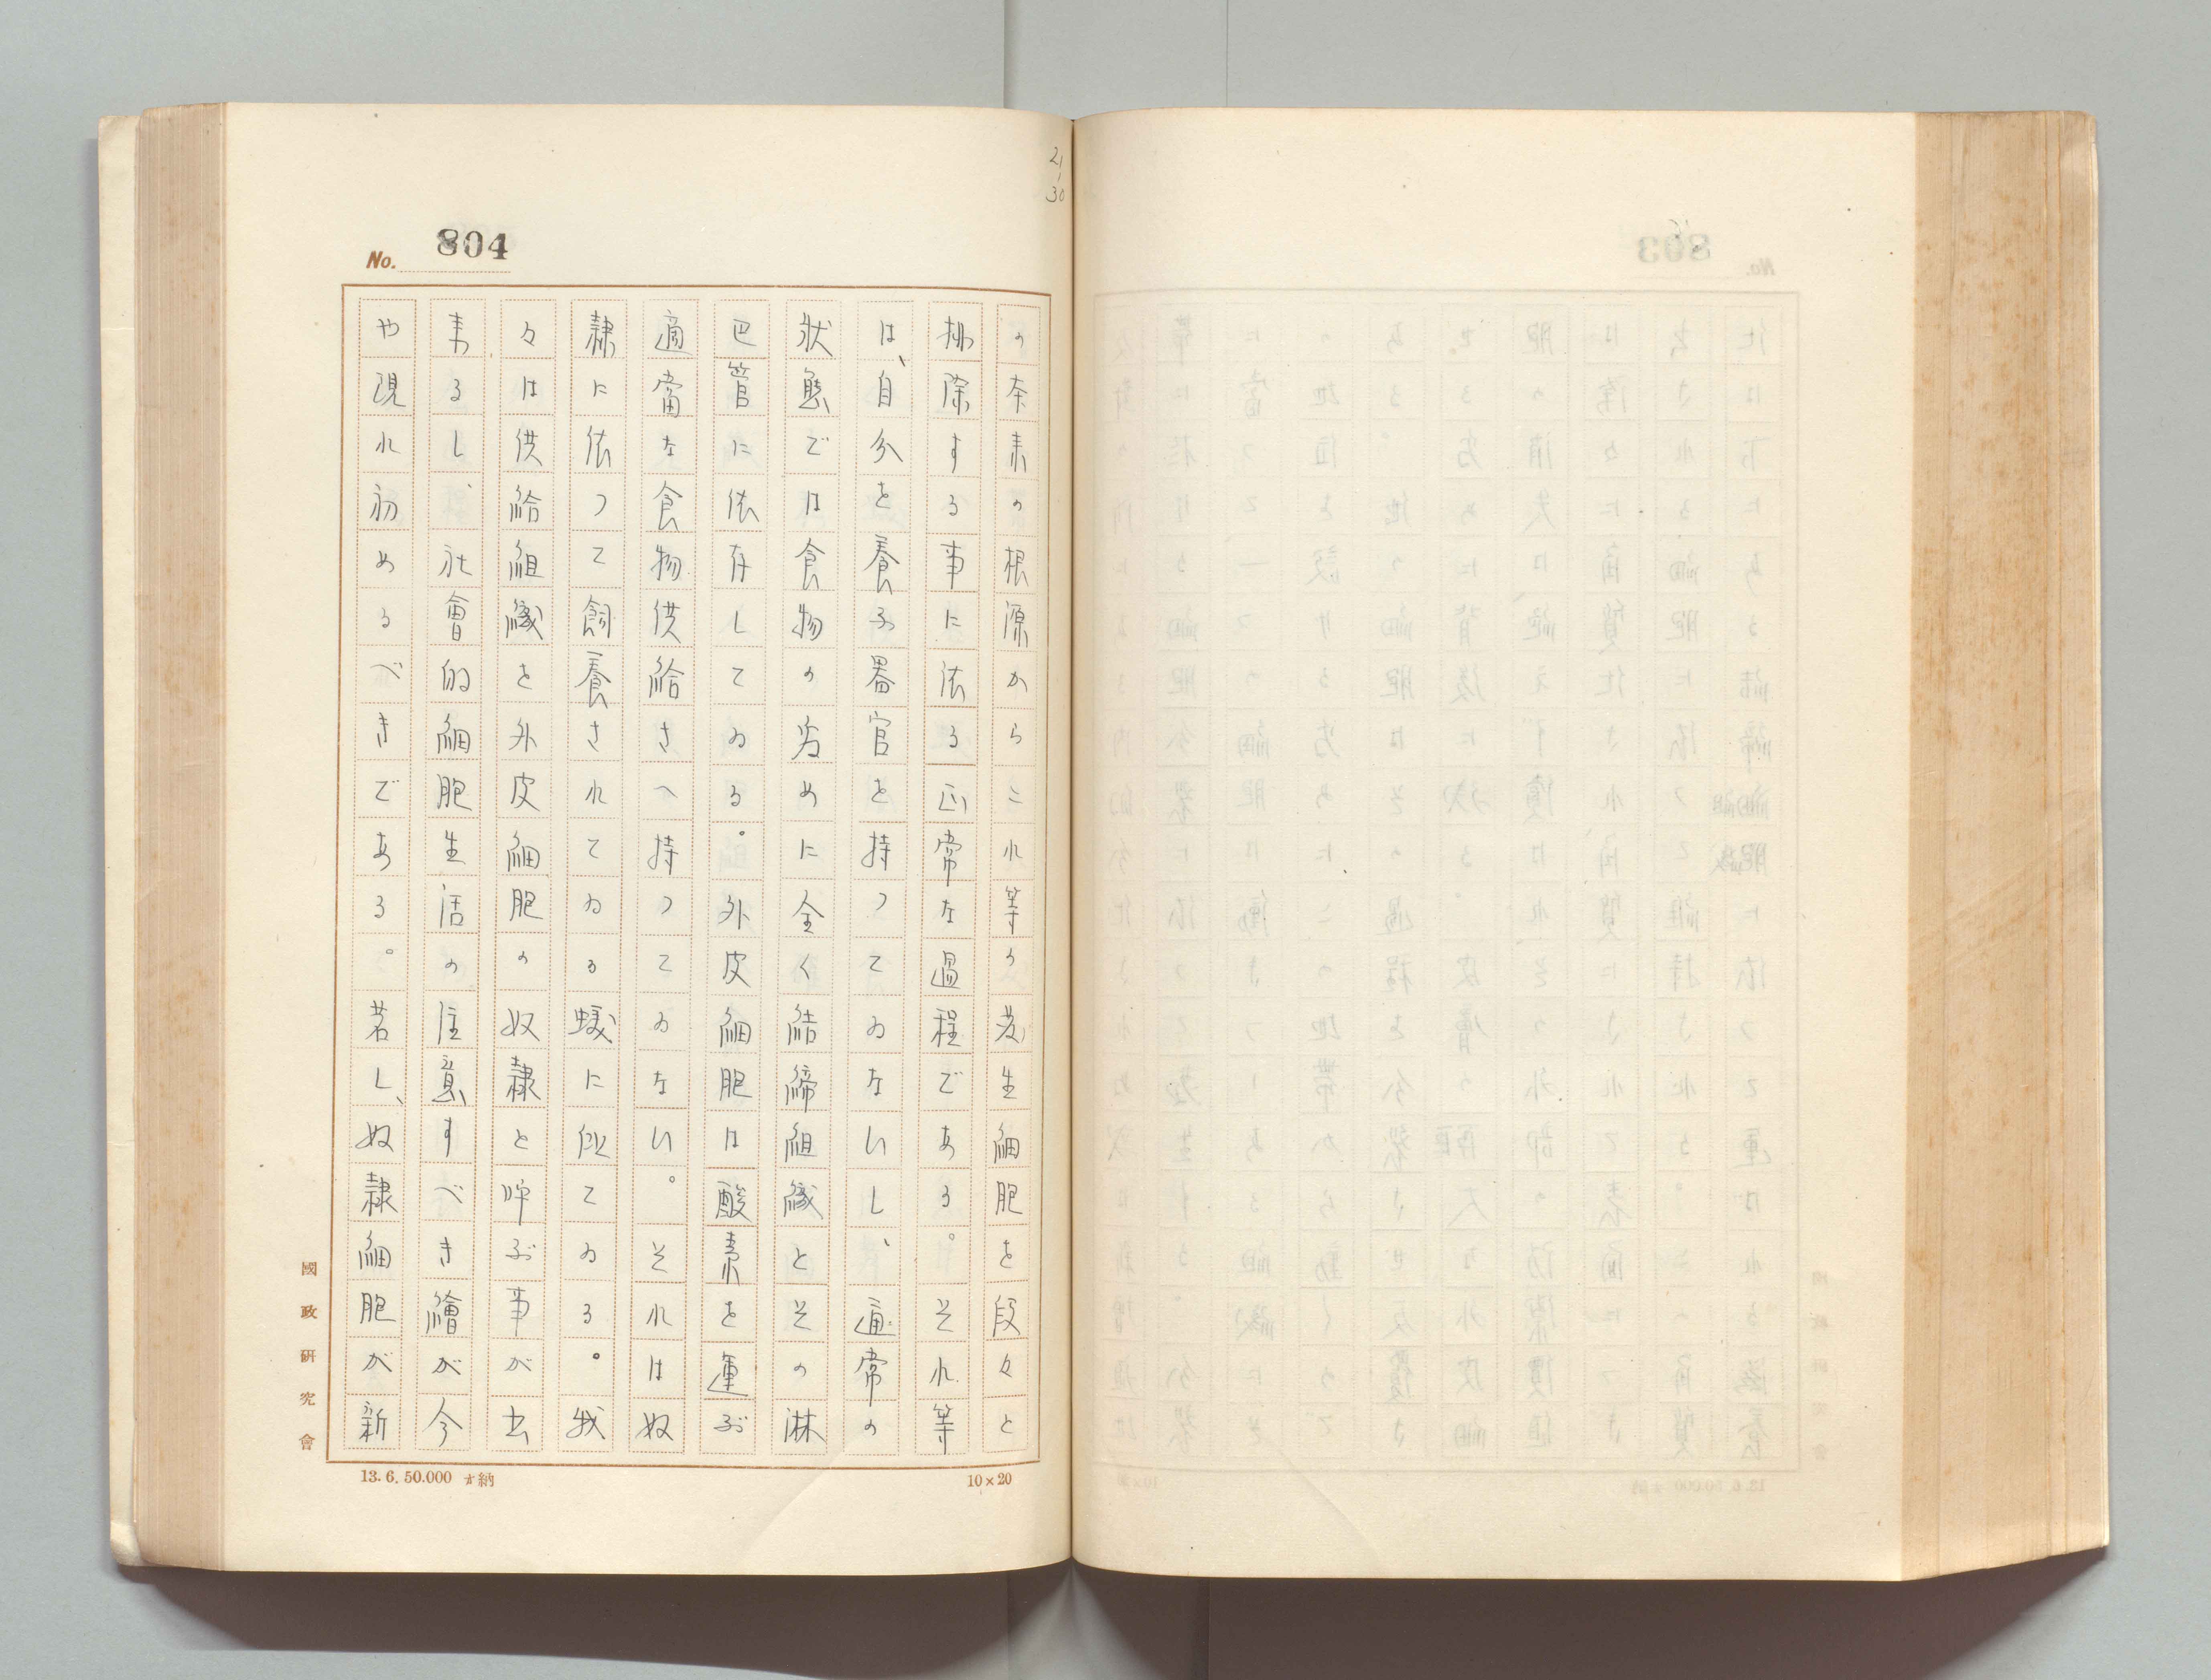 21
30
No. 804
の本来の根源からこれ等の発生細胞を段々と
排除する事に依る正常な過程である。それ等
は、自分を養ふ器官を持つてゐないし、通常の
状態では食物の為めに全く結締組織とその淋
巴管に依存してゐる。外皮細胞は酸素を運ぶ
適当な食物供給さへ持つてゐない。それは奴
隷に依つて飼養されてゐる蟻に似てゐる。我
々は供給組織を外皮細胞の奴隷と呼ぶ事が出
来るし、社會的細胞生活の注意すべき繪が今
や現れ初めるべきである。若し、奴隷細胞が新
國政研究會
13. 6. 50.000 納
10×20